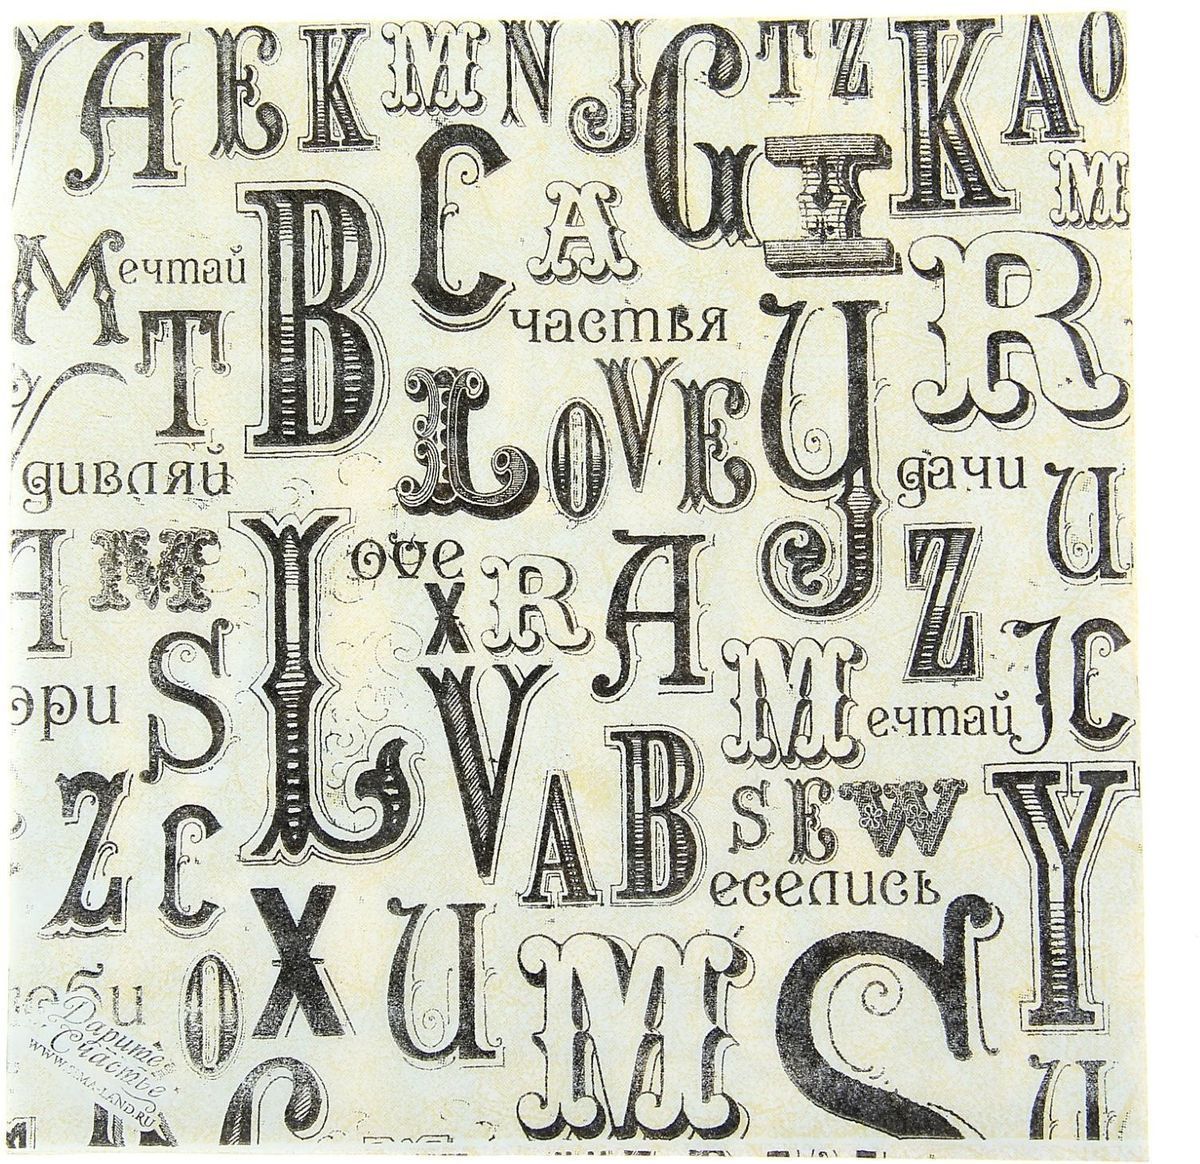 Y A E K M N J G T Z K A O
C A I M
Мечтай B частья R
T У
LOVE
дивляй дачи U
A M L ove X R A Z
S V M ечтай J C
эри
Z C A B S E W Y
еселись
O X U M S
юби
Дарите
Счастье
WWW.SIMA-LAND.RU
U